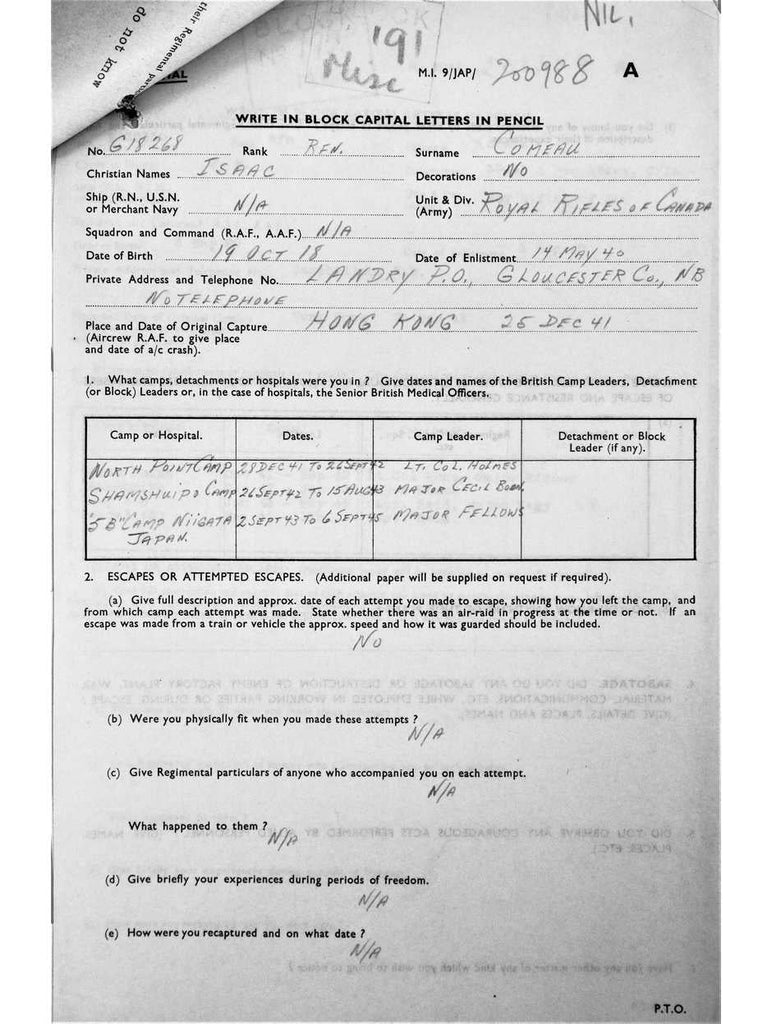 their Regimental partic
do not know
NIL.
191
Misc
M.I. 9/JAP/ 200988 A
WRITE IN BLOCK CAPITAL LETTERS IN PENCIL
No. G18268 Rank RFN. Surname COMEAU
Christian Names ISAAC Decorations NO
Ship (R.N., U.S.N. or Merchant Navy N/A Unit & Div. (Army) ROYAL RIFLES OF CANADA
Squadron and Command (R.A.F., A.A.F.) N/A
Date of Birth 19 OCT 18 Date of Enlistment 14 MAY 40
Private Address and Telephone No. LANDRY P.O., GLOUCESTER CO., NB
NO TELEPHONE
Place and Date of Original Capture HONG KONG 25 DEC 41
(Aircrew R.A.F. to give place
and date of a/c crash).
1. What camps, detachments or hospitals were you in ? Give dates and names of the British Camp Leaders, Detachment
(or Block) Leaders or, in the case of hospitals, the Senior British Medical Officers.
Camp or Hospital. Dates. Camp Leader. Detachment or Block
Leader (if any).
NORTH POINT CAMP 28 DEC 41 TO 26 SEPT 42 LT. COL. HOLMES
SHAMSHUIPO CAMP 26 SEPT 42 TO 15 AUG 43 MAJOR CECIL BOON
"5B" CAMP NIIGATA 2 SEPT 43 TO 6 SEPT 45 MAJOR FELLOWS
JAPAN.
2. ESCAPES OR ATTEMPTED ESCAPES. (Additional paper will be supplied on request if required).
(a) Give full description and approx. date of each attempt you made to escape, showing how you left the camp, and
from which camp each attempt was made. State whether there was an air-raid in progress at the time or not. If an
escape was made from a train or vehicle the approx. speed and how it was guarded should be included.
NO
(b) Were you physically fit when you made these attempts ?
N/A
(c) Give Regimental particulars of anyone who accompanied you on each attempt.
N/A
What happened to them ?
N/A
(d) Give briefly your experiences during periods of freedom.
N/A
(e) How were you recaptured and on what date ?
N/A
P.T.O.